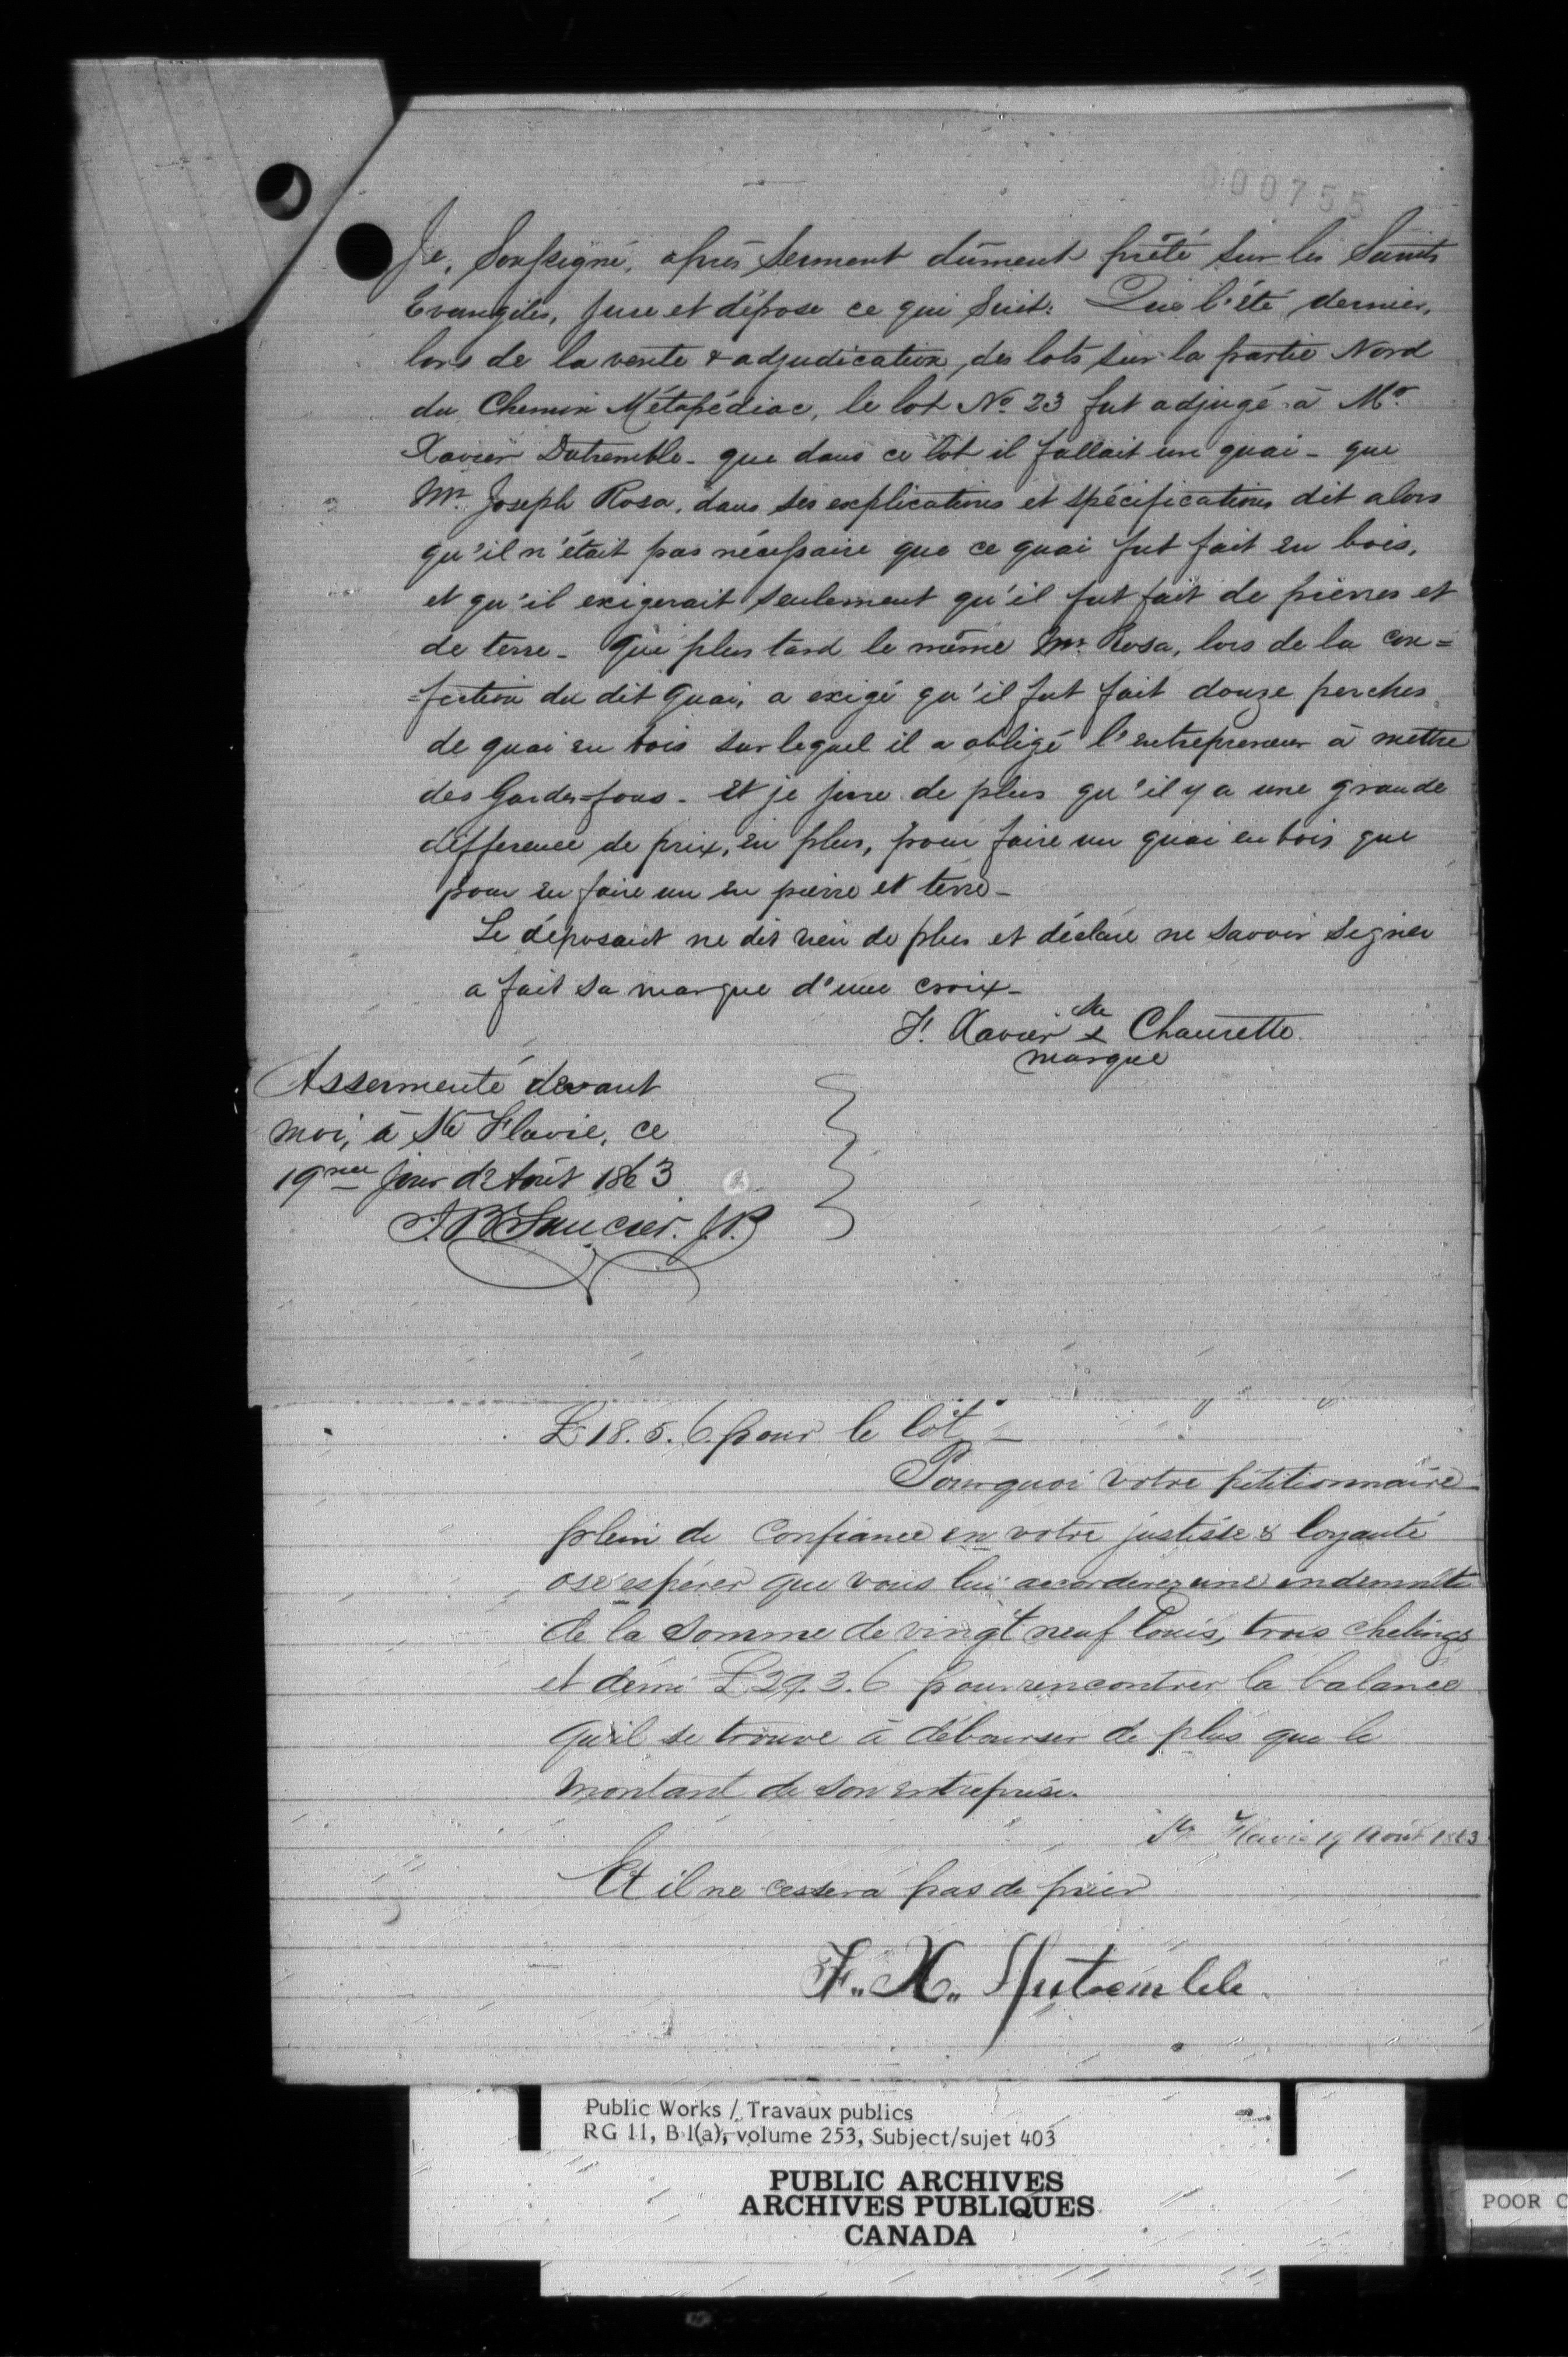 000755
Je, Soussigné, après serment dûment prêté sur les Saints
Evangiles, jure et dépose ce qui suit: Que l'été dernier,
lors de la vente & adjudication, des lots sur la partie Nord
du Chemin Métapédiac, le lot No. 23 fut adjugé à Mr.
Xavier Dutremble - que dans ce lot il fallait un quai - que
Mr. Joseph Rosa, dans ses explications et spécifications dit alors
qu'il n'était pas nécessaire que ce quai fut fait en bois,
et qu'il exigerait seulement qu'il fut fait de pierres et
de terre - Que plus tard le même Mr. Rosa, lors de la con=
=fection du dit Quai, a exigé qu'il fut fait douze perches
de quai en bois sur lequel il a obligé l'entrepreneur à mettre
des Gardes=fous - Et je jure de plus qu'il y a une grande
difference de prix, en plus, pour faire un quai en bois que
pour en faire un en pierre et terre -
Le déposant ne dit rien de plus et déclare ne savoir signer
a fait sa marque d'une croix -
sa
F. Xavier x Chaurette
marque
Assermenté devant
moi, à Ste Flavie, ce
19me jour d'Août 1863
J. B. Saucier. J.P.
£18.5.6. pour le lot -
Pourquoi votre pétitionnaire
plein de confiance en votre justisse & loyauté
ose espérer que vous lui accorderez une indemnité
de la somme de vingt neuf Louis, trois chelings
et demi £29.3.6 pour rencontrer la balance
qu'il se trouve à débourser de plus que le
montant de son entreprise.
Ste Flavie 19 Août 1863
Et il ne cessera pas de prier
F. X. Dutremble
Public Works / Travaux publics
RG 11, B 1(a), volume 253, Subject/sujet 403
PUBLIC ARCHIVES
ARCHIVES PUBLIQUES
CANADA
POOR